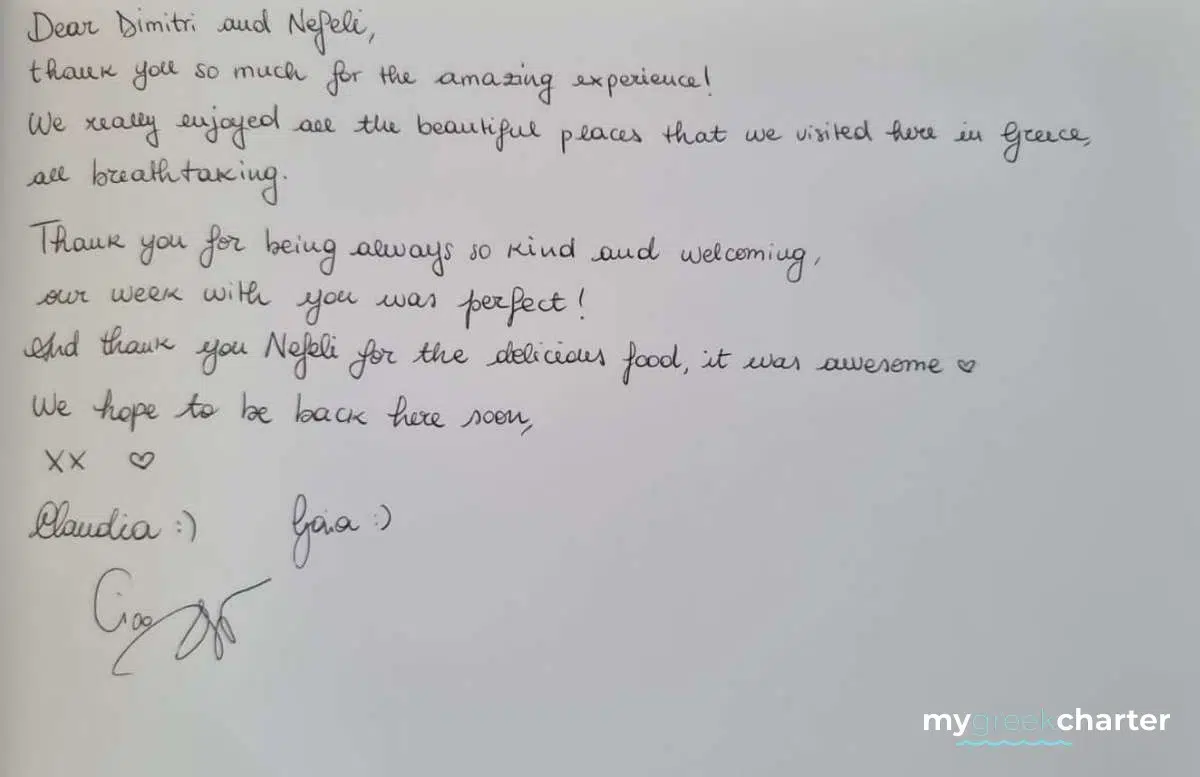 Dear Dimitri and Nefeli,
thank you so much for the amazing experience!
We really enjoyed all the beautiful places that we visited here in Greece,
all breathtaking.
Thank you for being always so kind and welcoming,
our week with you was perfect!
And thank you Nefeli for the delicious food, it was awesome ♡
We hope to be back here soon,
XX ♡
Claudia :) Gaia :)
Ciao
mygreekcharter